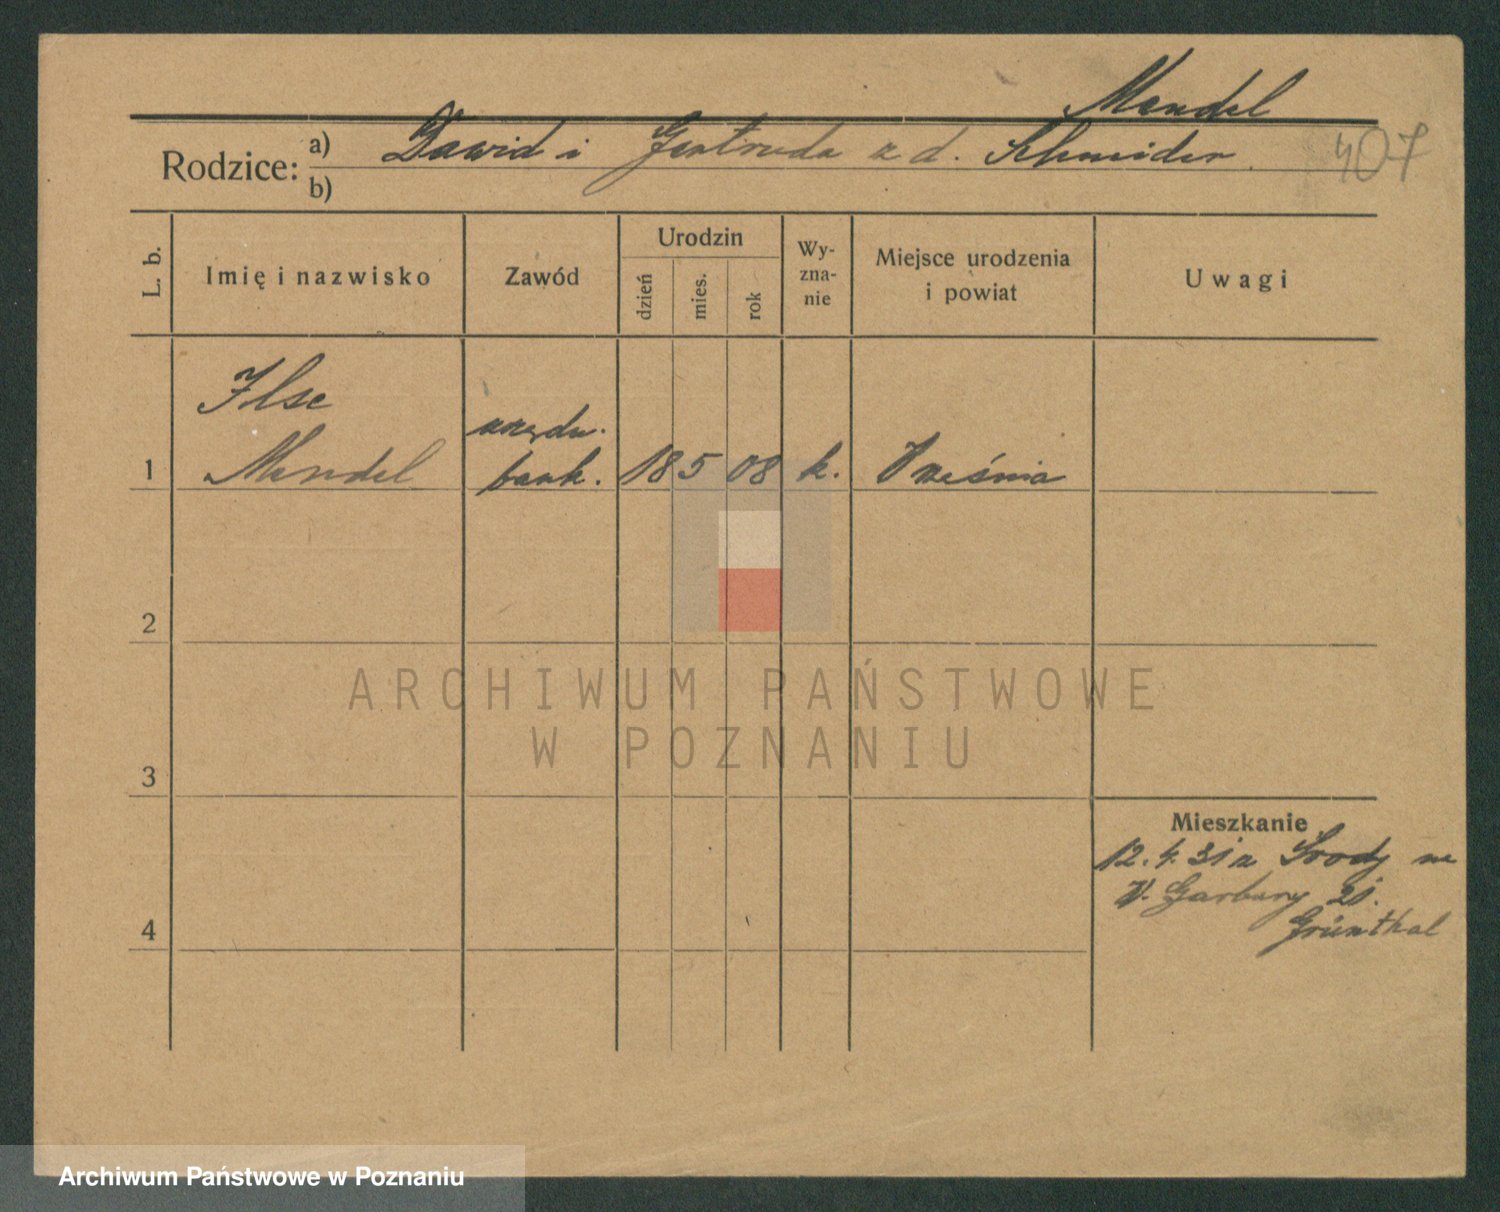 Mendel
Rodzice: a) Dawid i Gertruda z d. Schneider
407
b)
L. b.
Imię i nazwisko
Zawód
Urodzin
dzień
mies.
rok
Wy-
zna-
nie
Miejsce urodzenia
i powiat
Uwagi
Ilse
Mendel
urzędn.
bank.
1
18 5 08 k. Września
2
3
4
ARCHIWUM PAŃSTWOWE
W POZNANIU
Mieszkanie
12. 4. 31 z Środy na
W. Garbary 21.
Grünthal
Archiwum Państwowe w Poznaniu